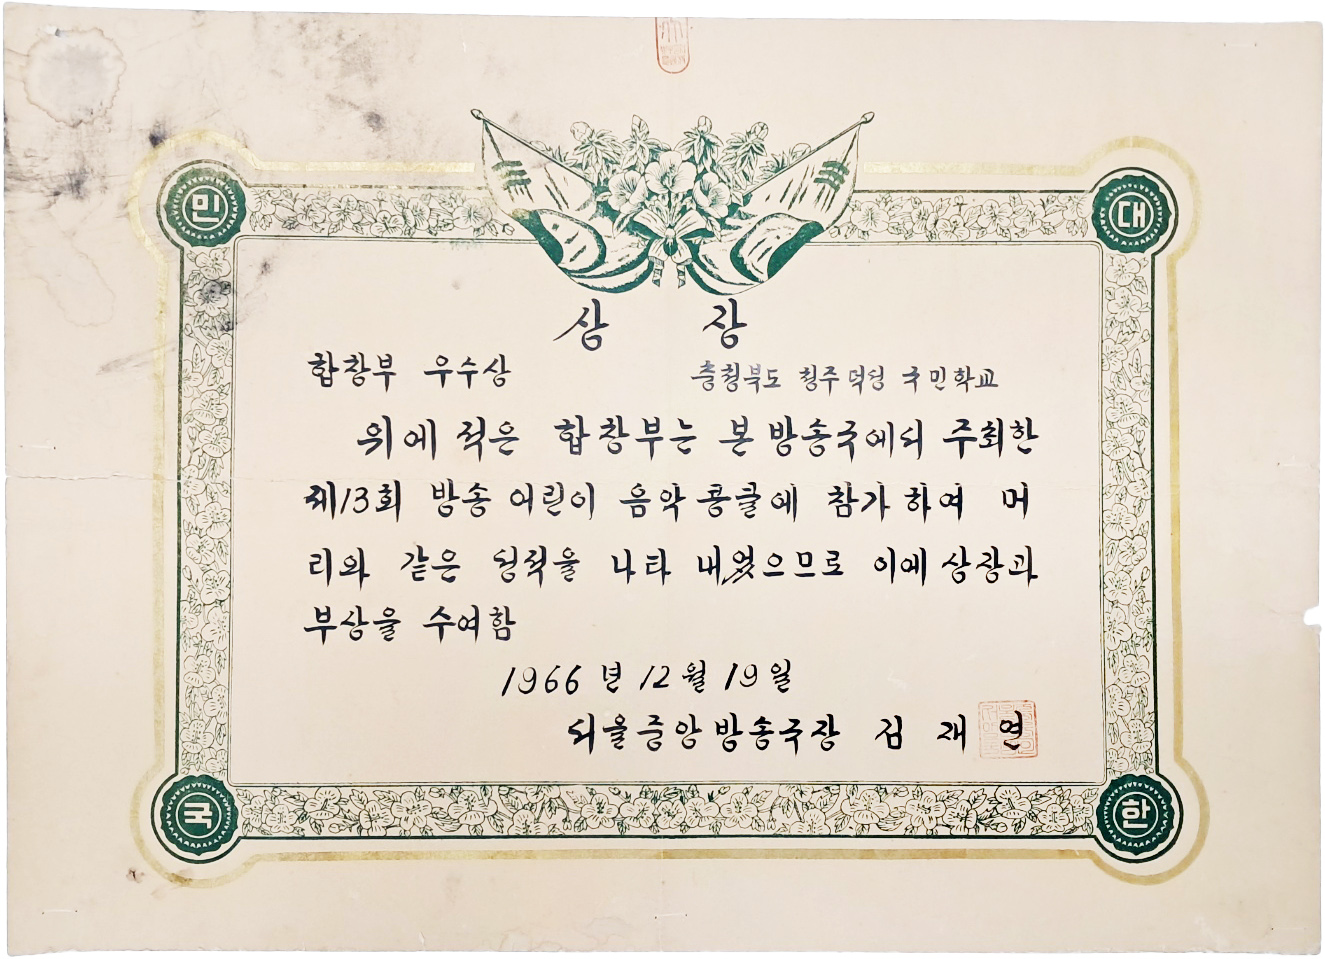 대
한
민
국
상 장
합창부 우수상
충청북도 청주 덕성 국민학교
위에 적은 합창부는 본 방송국에서 주최한
제13회 방송 어린이 음악 콩쿨에 참가 하여 머
리와 같은 성적을 나타 내었으므로 이에 상장과
부상을 수여함
1966 년 12 월 19 일
서울중앙 방송국장 김 재 연